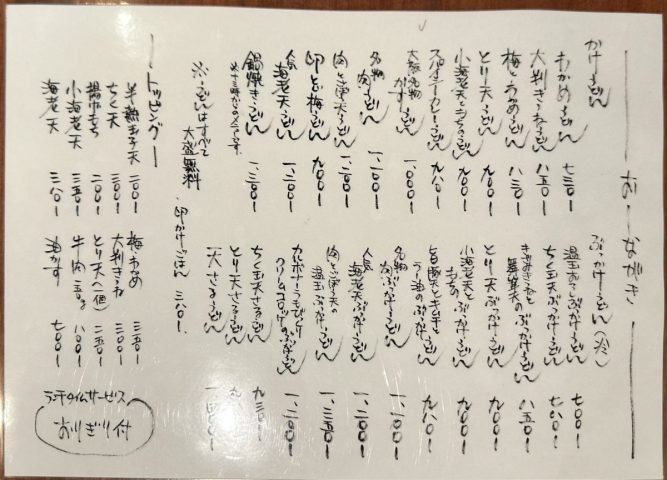 おしながき
かけうどん
わかめうどん 七三〇ー
大判きつねうどん 八五〇ー
梅とわかめうどん 八三〇ー
とり天うどん 九〇〇ー
小海老天ともちのうどん 九〇〇ー
スパイシーカレーうどん 九八〇ー
大阪名物かすうどん 一、〇〇〇ー
名物肉うどん 一、一〇〇ー
肉とごぼう天うどん 一、二〇〇ー
卵と梅うどん 九〇〇ー
人気海老天うどん 一、二〇〇ー
鍋焼きうどん 一、三〇〇ー
※うどんはすべて大盛無料
ぶっかけうどん（冷）
温玉おろしぶっかけうどん 七〇〇ー
ちく玉天ぶっかけうどん 七八〇ー
舞茸天のぶっかけうどん 八五〇ー
とり天ぶっかけうどん 九〇〇ー
小海老天ともちのぶっかけうどん 九〇〇ー
旨豚天とキムチとラー油のぶっかけうどん 九八〇ー
名物肉ぶっかけうどん 一、一〇〇ー
人気海老天ぶっかけうどん 一、二〇〇ー
肉とごぼう天の温玉ぶっかけうどん 一、三五〇ー
一、二〇〇ー
ちく玉天ざるうどん 九三〇ー
とり天ざるうどん
天ざるうどん
卵かけごはん 三八〇ー
ートッピングー
半熟玉子天 二〇〇ー
ちく天 三〇〇ー
揚げもち 二〇〇ー
小海老天 三五〇ー
海老天 三八〇ー
梅・わかめ 三五〇ー
大判きつね 三〇〇ー
とり天（一個） 二五〇ー
牛肉 八〇〇ー
油かす 七〇〇ー
ランチタイムサービス
おにぎり付